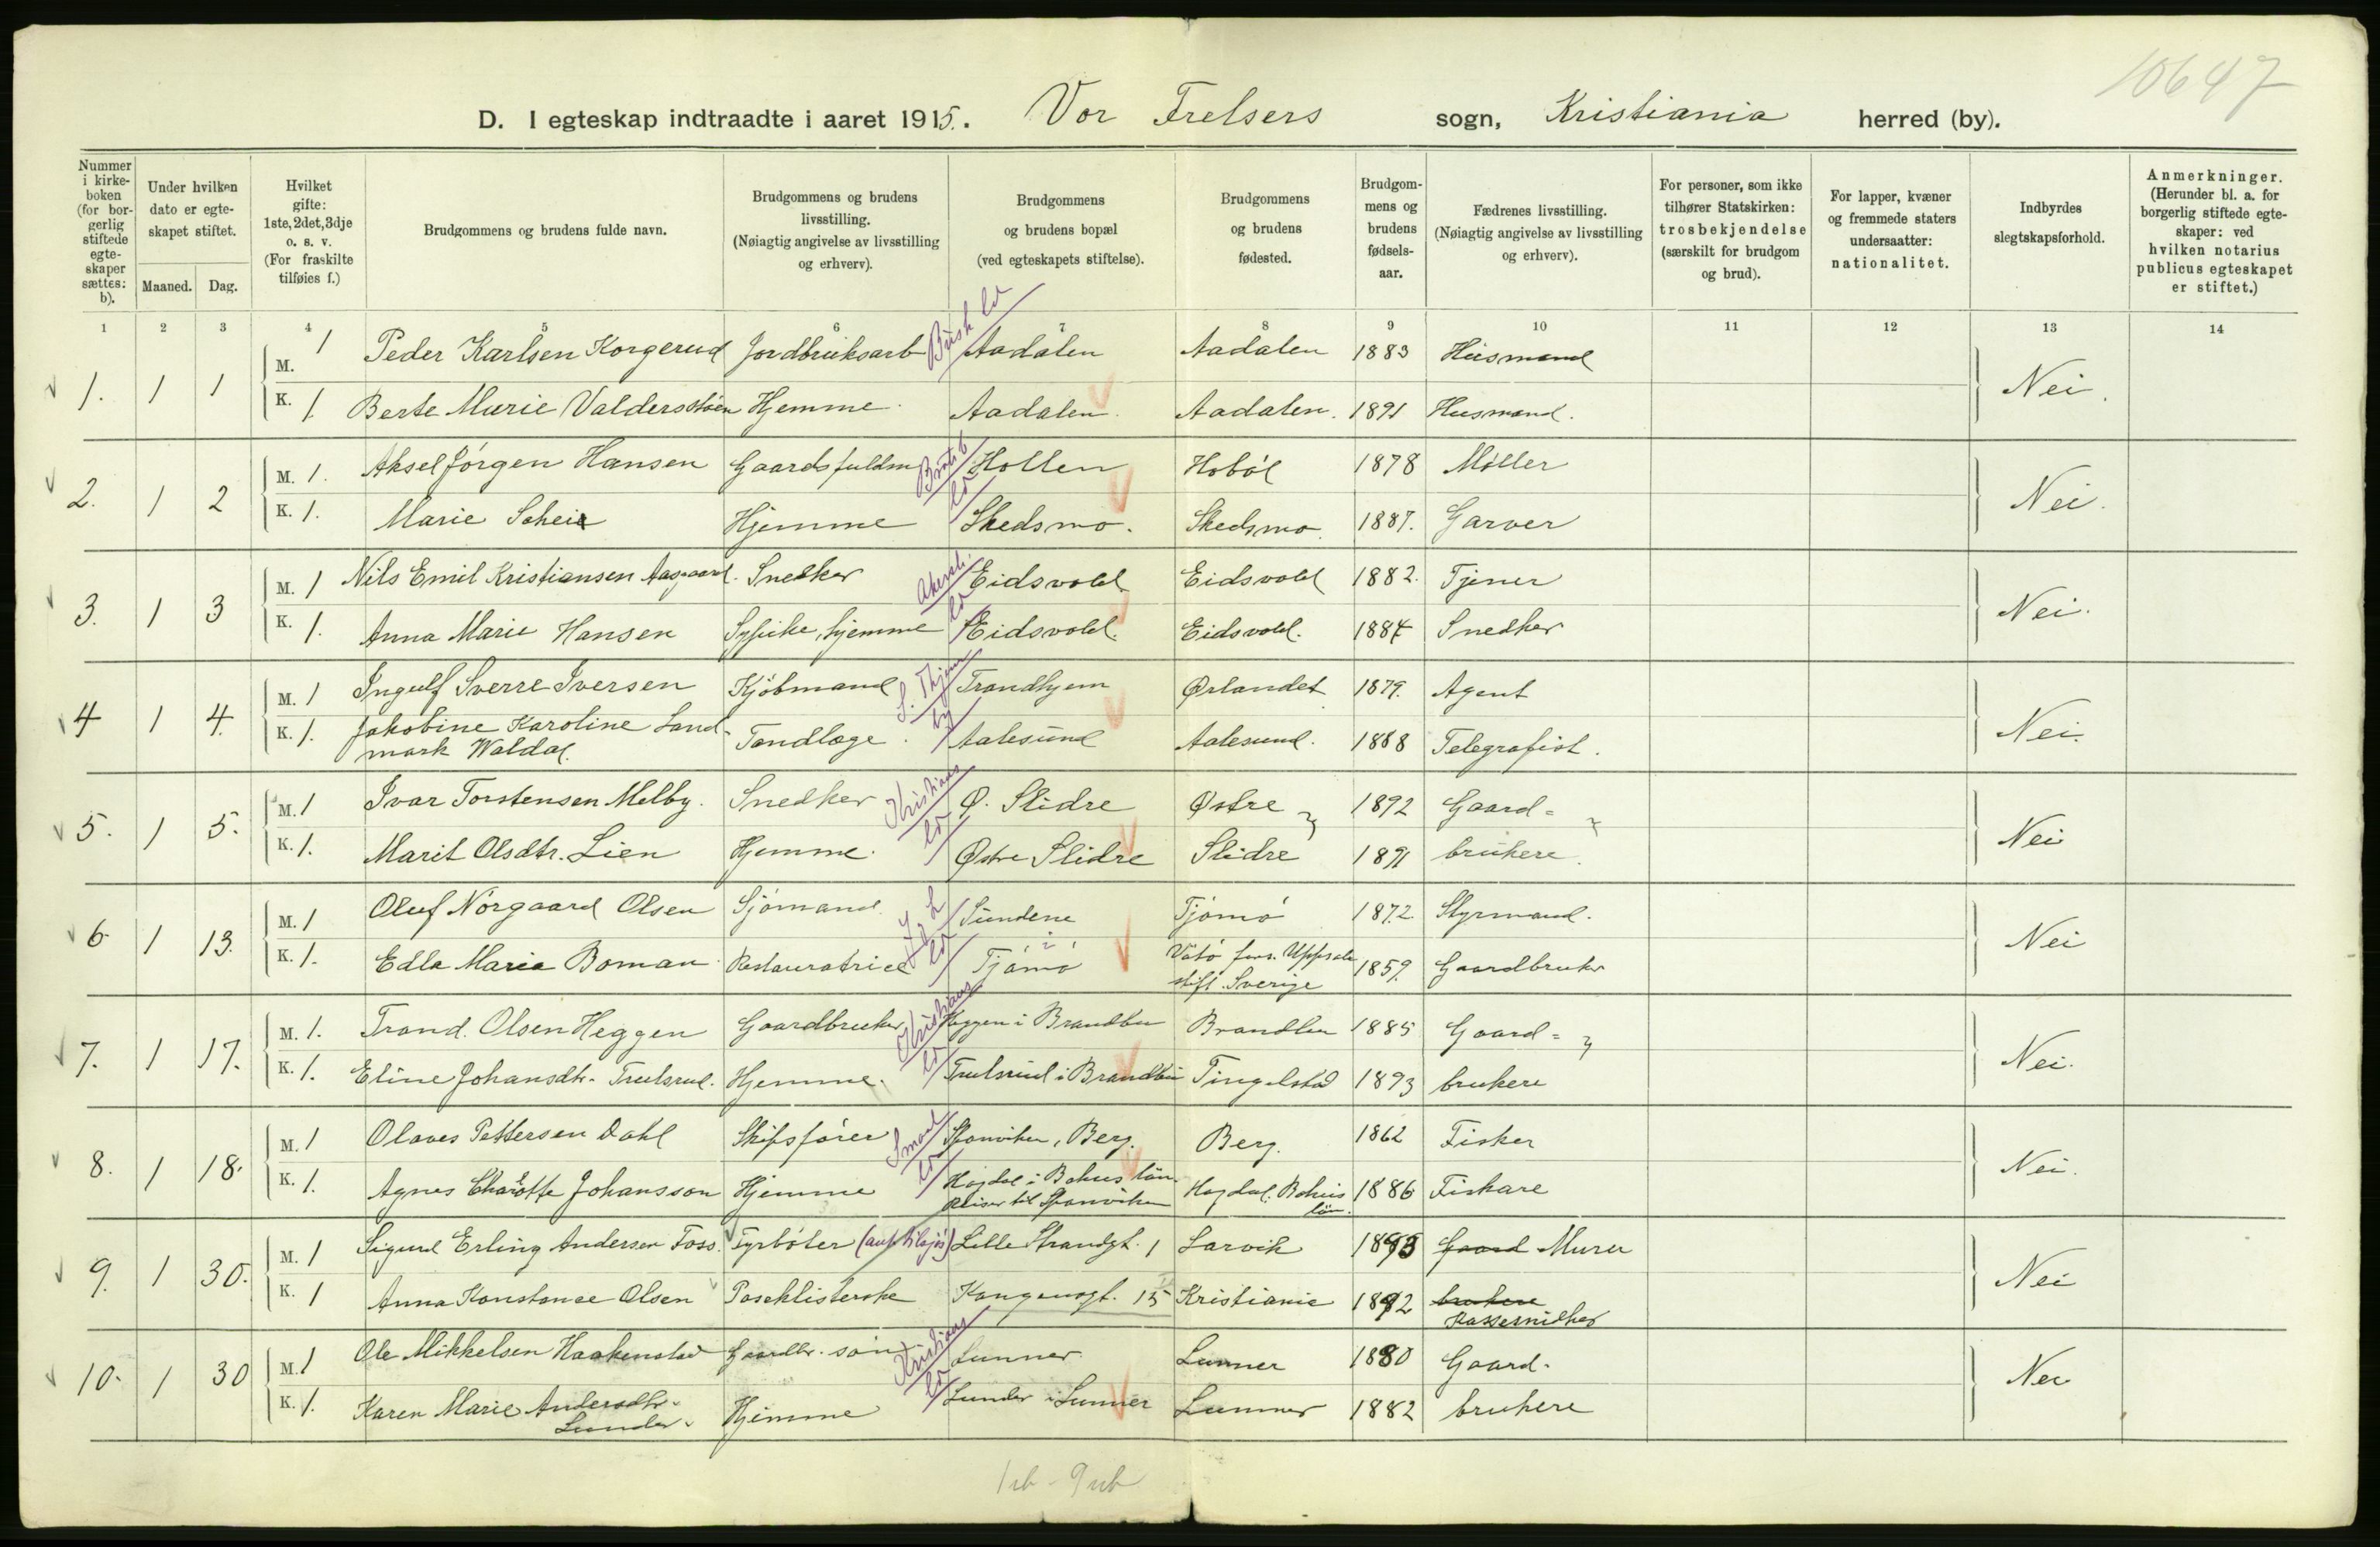 10647
D. I egteskap indtraadte i aaret 1915. Vor Frelsers sogn, Kristiania herred (by).
Nummer i kirke-boken (for bor-gerlig stiftede egte-skaper sættes: b).
Under hvilken dato er egte-skapet stiftet.
Maaned. Dag.
Hvilket gifte: 1ste, 2det, 3dje o. s. v. (For fraskilte tilføies f.)
Brudgommens og brudens fulde navn.
Brudgommens og brudens livsstilling. (Nøiagtig angivelse av livsstilling og erhverv).
Brudgommens og brudens bopæl (ved egteskapets stiftelse).
Brudgommens og brudens fødested.
Brudgom-mens og brudens fødsels-aar.
Fædrenes livsstilling. (Nøiagtig angivelse av livsstilling og erhverv).
For personer, som ikke tilhører Statskirken: trosbekjendelse (særskilt for brudgom og brud).
For lapper, kvæner og fremmede staters undersaatter: nationalitet.
Indbyrdes slegtskapsforhold.
Anmerkninger. (Herunder bl. a. for borgerlig stiftede egte-skaper: ved hvilken notarius publicus egteskapet er stiftet.)
1 2 3 4 5 6 7 8 9 10 11 12 13 14
1. 1 1 M. 1 Peder Karlsen Korgerud Jordbruksarb Busk ld Aadalen Aadalen 1883 Husmand Nei.
K. 1. Berte Marie Valdersstøen Hjemme. Aadalen. Aadalen. 1891 Husmand.
2. 1 2 M. 1. Aksel Jørgen Hansen Gaardsfuldm Bratsb ld Hollen Hobøl 1878 Møller Nei.
K. 1. Marie Scheie Hjemme Skedsmo. Skedsmo. 1887. Garver
3. 1 3 M. 1 Nils Emil Kristiansen Aasgaard. Snedker Akersh. ld Eidsvold Eidsvold 1882. Tjener Nei.
K. 1. Anna Marie Hansen Sypike, hjemme Eidsvold. Eidsvold. 1884 Snedker
4 1 4. M. 1 Ingulf Sverre Iversen Kjøbmand S. Thjem by Trondhjem Ørlandet 1879. Agent Nei.
K. 1. Jakobine Karoline Land-
mark Waldal. Tandlæge. Aalesund Aalesund. 1888 Telegrafist.
5. 1 5. M. 1 Ivar Torstensen Melby. Snedker Kristians ld Ø. Slidre Østre 1892 Gaard= Nei
K. 1. Marit Olsdtr. Lien Hjemme. Østre Slidre Slidre 1891 brukere.
6. 1 13. M. 1 Oluf Nørgaard Olsen Sjømand. J & L ld Sundene Tjømø 1872. Styrmand. Nei
K. 1. Edla Maria Boman. Restauratrice i Tjømø Vätö førs. Uppsala
stift. Sverige 1859. Gaardbruker
7. 1 17. M. 1. Trond. Olsen Heggen Gaardbruker Kristians ld Heggen i Brandbu Brandbu 1885 Gaard= Nei.
K. 1. Eline Johansdtr. Trulsrud. Hjemme. Trulsrud i Brandbu Tingelstad 1893 brukere
8. 1 18. M. 1 Olaves Pettersen Dahl Skibsfører Smaal ld Sponviken, Berg. Berg. 1862 Fisker Nei.
K. 1. Agnes Charlotte Johansson Hjemme Hogdal i Bohus län.
reiser til Sponviken Hogdal. Bohus
län. 1886 Fiskare
9. 1 30. M. 1 Sigurd Erling Andersen Foss. Fyrbøter Lille Strandgt. 1 Larvik 1893 Gaard Murer Nei
K. 1 Anna Konstance Olsen Poseklisterske Kongensgt. 15 Kristiania 1892 brukere
Kassesnidker
10. 1 30 M. 1 Ole Mikkelsen Haakenstad Gaardbr. søn Kristians ld Lunner Lunner 1880 Gaard- Nei
K. 1. Karen Marie Andersdtr.
Lunder. Hjemme Lunder i Lunner Lunner 1882 brukere
1 ub - 9 ub